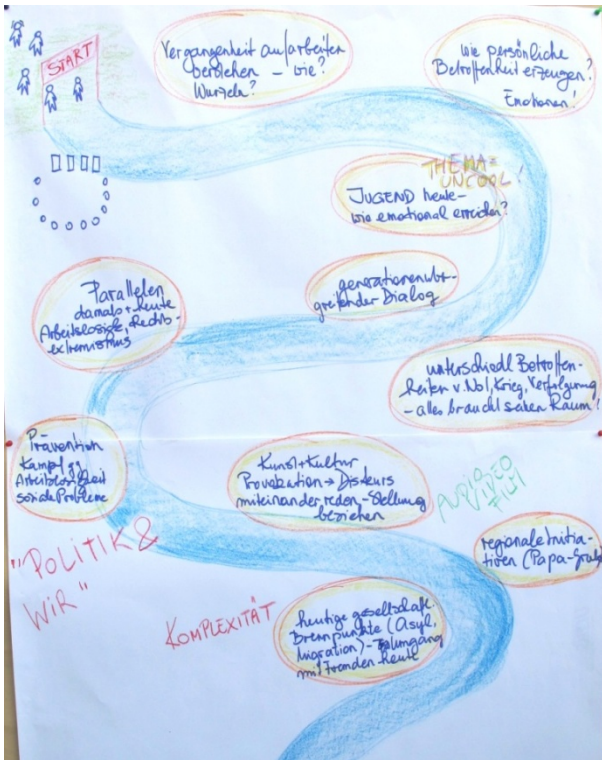 START
Vergangenheit aufarbeiten
verstehen – wie?
Wurzeln?
wie persönliche
Betroffenheit erzeugen?
Emotionen!
THEMA =
UNCOOL!
JUGEND heute –
wie emotional erreichen?
generationenüber-
greifender Dialog
Parallelen
damals + heute
Arbeitslosigk., Rechts-
extremismus
unterschiedl Betroffen-
heiten v. Not, Krieg, Verfolgung
– alles braucht seinen Raum!
Prävention
Kampf gg
Arbeitslosigkeit
soziale Probleme
Kunst + Kultur
Provokation → Diskurs
miteinander reden – Stellung
beziehen
AUDIO
VIDEO
FILM
regionale Initia-
tiven (Papa-Grube
"POLITIK &
WIR"
KOMPLEXITÄT
heutige gesellschaftl.
Brennpunkte (Asyl,
Migration) – Umgang
mit Fremden heute